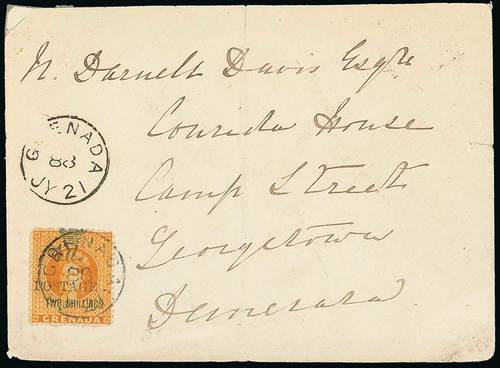 N. Darnell Davis Esqre
Conrida House
Camp Street
Georgetown
Demerara
GRENADA
88
JY 21
GRENADA
88
POSTAGE
TWO SHILLINGS
GRENADA